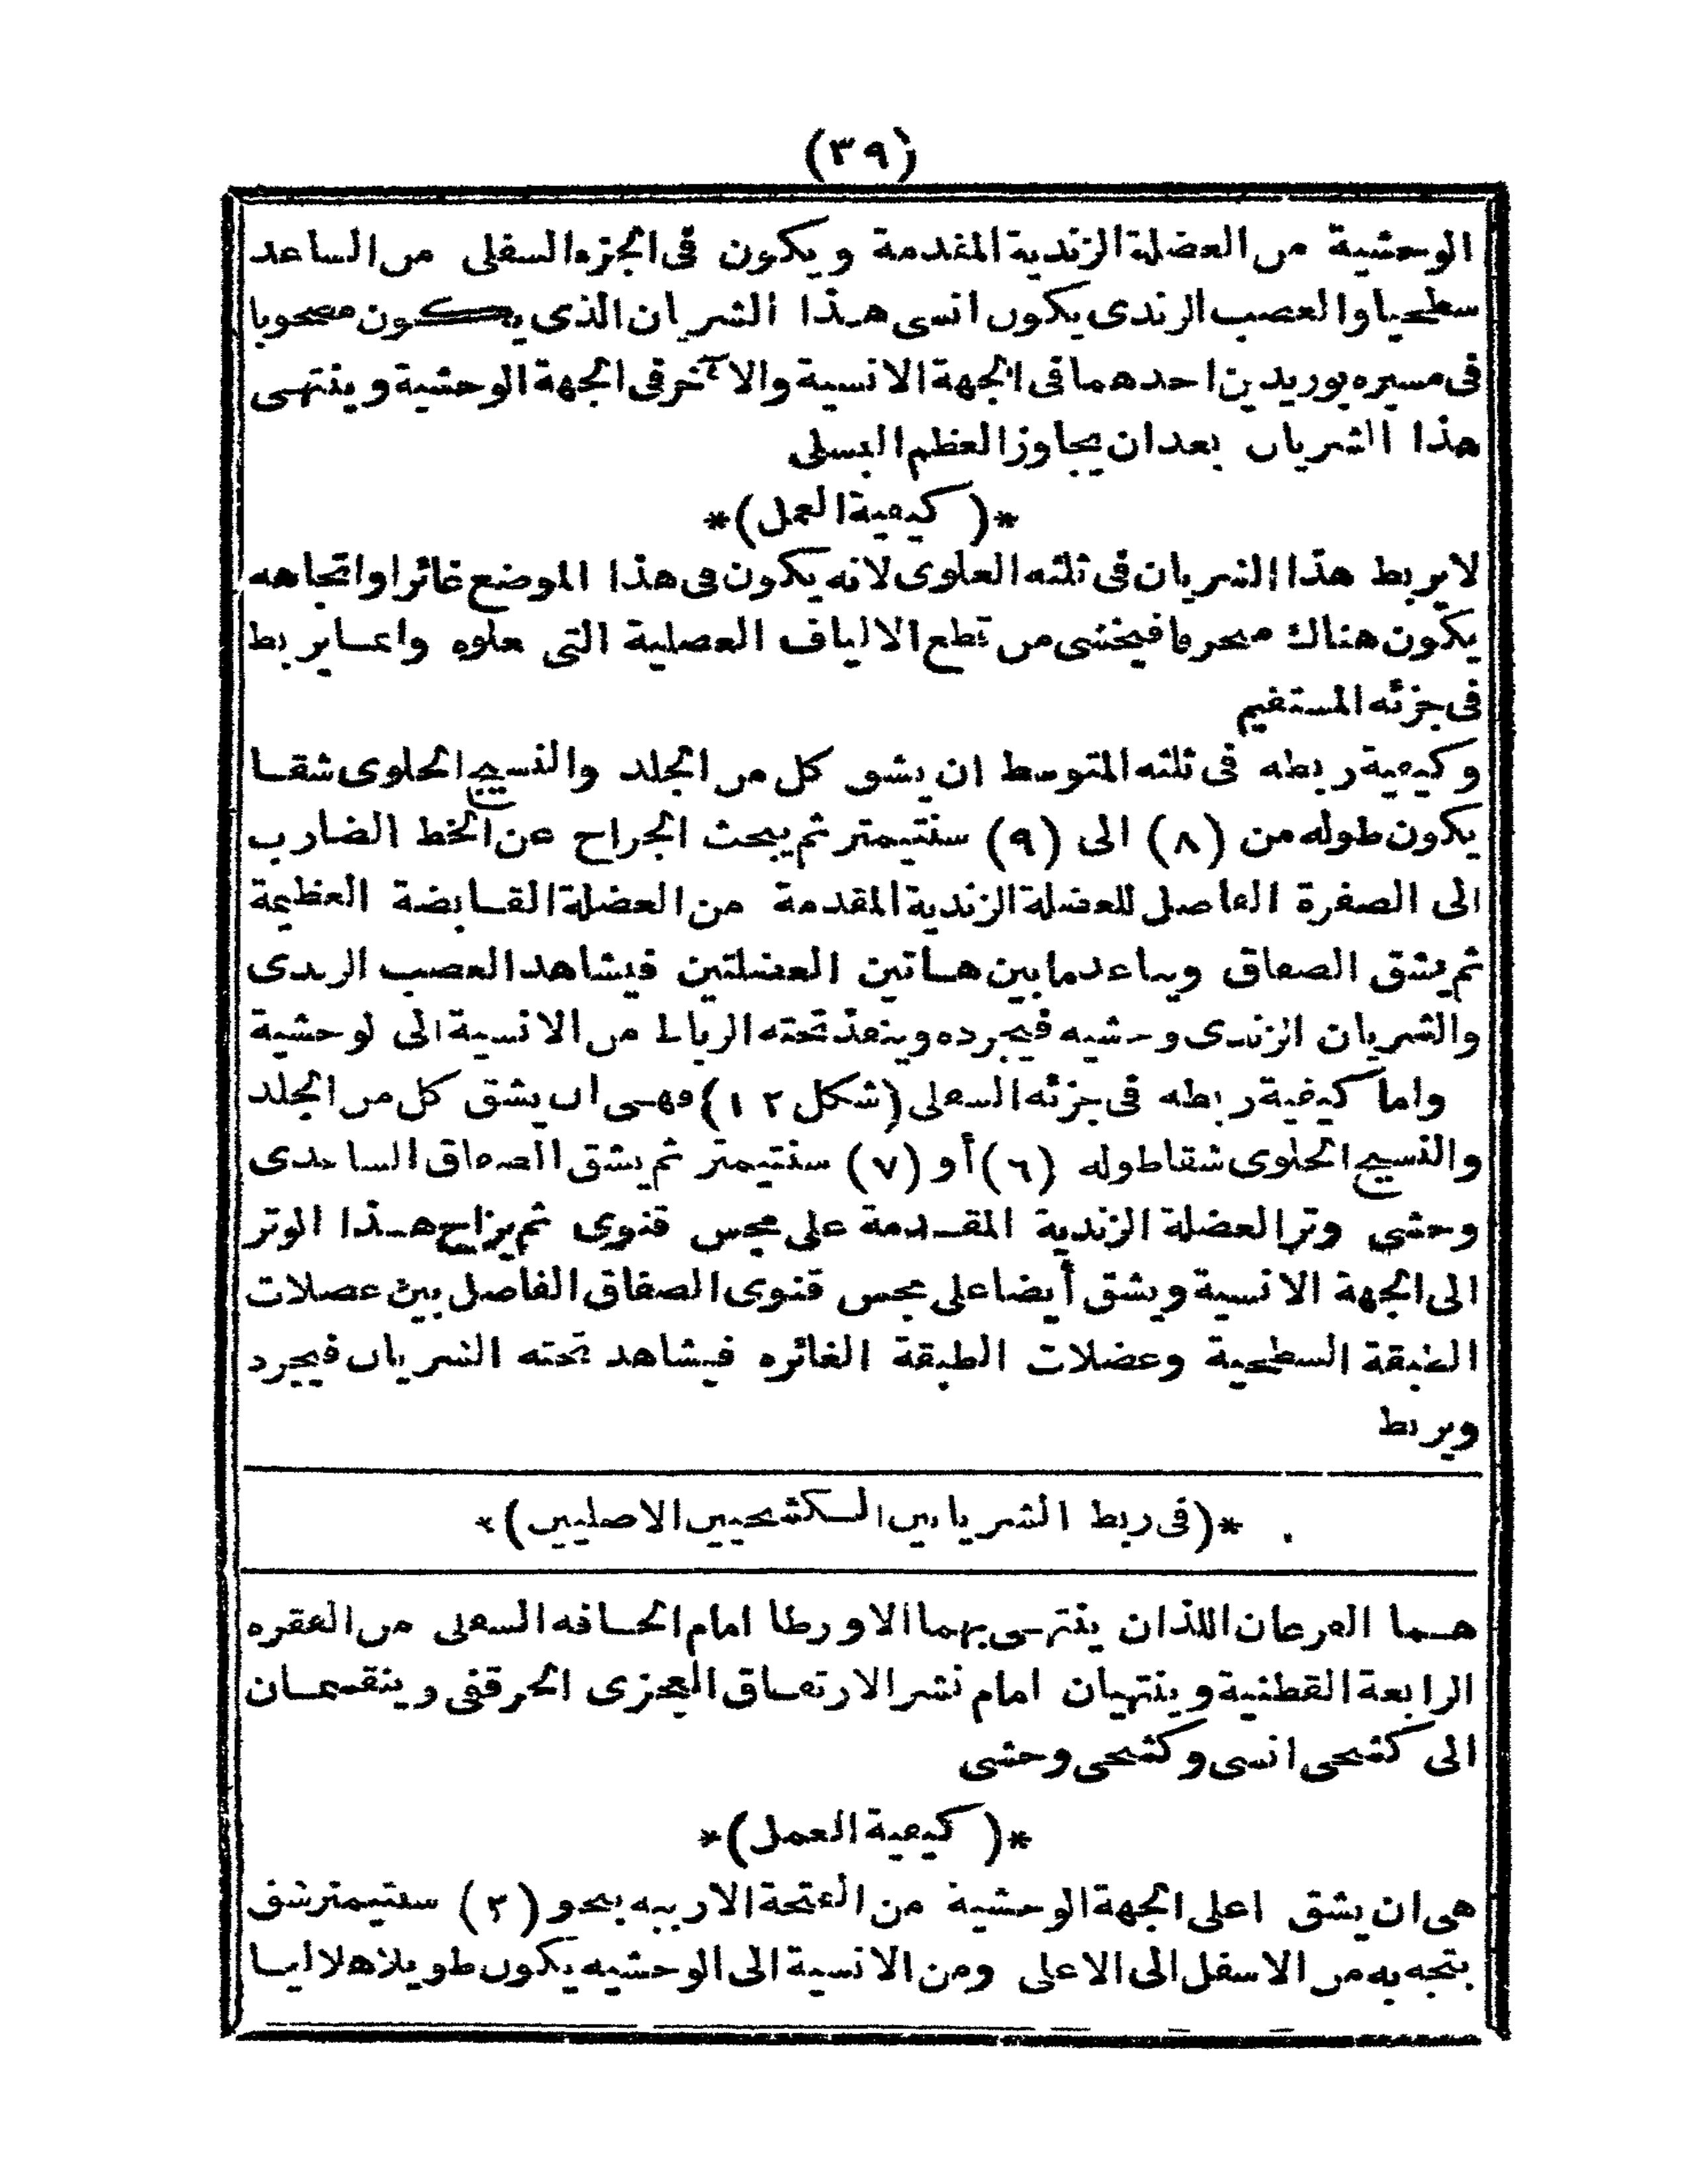 (٣٩)
الوحشية من العضلة الزندية المقدمة ويكون فى الجزء السفلى من الساعد
سطحيا والعصب الزندى يكون انسى هذا الشريان الذى يكون مصحوبا
فى مسيره بوريدين احدهما فى الجهة الانسية والآخر فى الجهة الوحشية وينتهى
هذا الشريان بعد ان يجاوز العظم البسلى
*(كيفية العمل)*
لايربط هذا الشريان فى ثلثه العلوى لانه يكون فى هذا الموضع غائرا واتجاهه
يكون هناك منحرفا فيخشى من قطع الالياف العضلية التى تعلوه وانما يربط
فى جزئه المستقيم
وكيفية ربطه فى ثلثه المتوسط ان يشق كل من الجلد والنسيج الخلوى شقا
يكون طوله من (٨) الى (٩) سنتيمتر ثم يبحث الجراح عن الخط الضارب
الى الصفرة الفاصل للعضلة الزندية المقدمة من العضلة القابضة العظيمة
ثم يشق الصفاق ويباعد ما بين هاتين العضلتين فيشاهد العصب الزندى
والشريان الزندى وحشيه فيجرده وينفذ تحته الرباط من الانسية الى لوحشية
واما كيفية ربطه فى جزئه السفلى (شكل ١٢) فهى ان يشق كل من الجلد
والنسيج الخلوى شقا طوله (٦) أو (٧) سنتيمتر ثم يشق الصفاق الساعدى
وحشى وتر العضلة الزندية المقدمة على مجس قنوى ثم يزاح هذا الوتر
الى الجهة الانسية ويشق أيضا على مجس قنوى الصفاق الفاصل بين عضلات
الطبقة السطحية وعضلات الطبقة الغائره فيشاهد تحته الشريان فيجرد
ويربط
*(فى ربط الشريانين الكشحيين الاصليين)*
هما الفرعان اللذان ينتهى بهما الاورطا امام الحافه السفلى من الفقره
الرابعة القطنية وينتهيان امام نشر الارتفاق العجزى الحرقفى وينقسمان
الى كشحى انسى وكشحى وحشى
*(كيفية العمل)*
هى ان يشق اعلى الجهة الوحشية من الفتحة الاربيه بنحو (٣) سنتيمتر شق
يتجه به من الاسفل الى الاعلى ومن الانسية الى الوحشيه يكون طويلا هلاليا